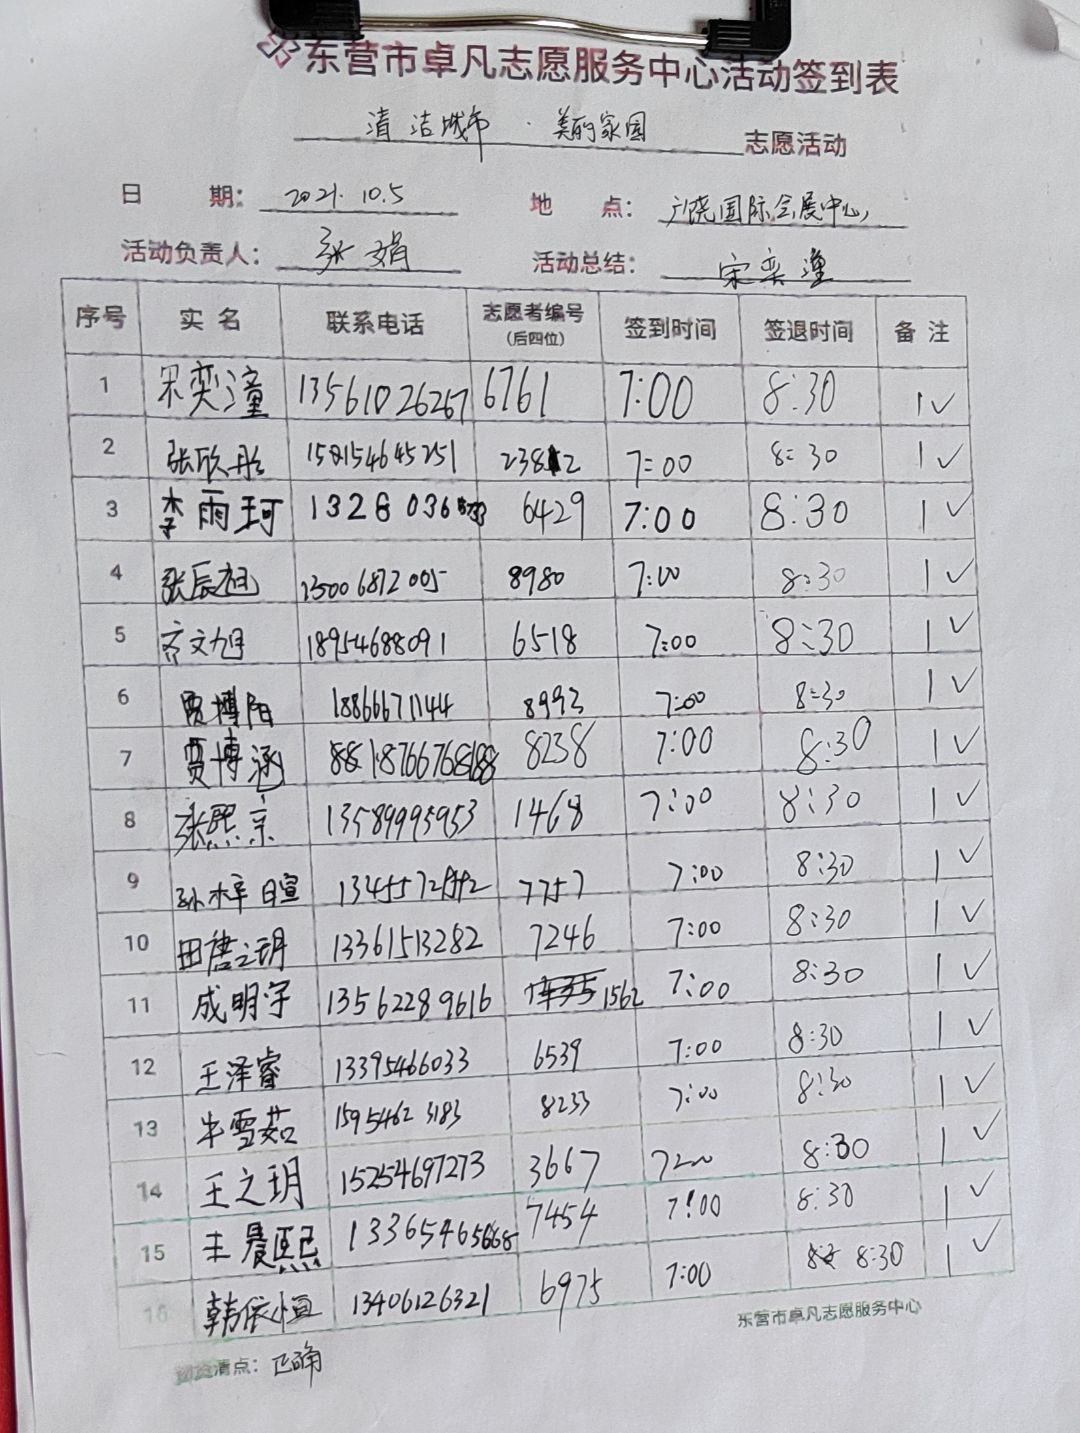 东营市卓凡志愿服务中心活动签到表
清洁城市·美的家园 志愿活动
日期: 2021.10.5 地点: 广饶国际会展中心
活动负责人: 张娟 活动总结: 宋奕潼
序号 实名 联系电话 志愿者编号(后四位) 签到时间 签退时间 备注
1 宋奕潼 13561026267 6761 7:00 8:30 1✓
2 张欣彤 150154645251 2382 7:00 8:30 1✓
3 李雨珂 1328036 6429 7:00 8:30 1✓
4 张辰 15006872005 8980 7:00 8:30 1✓
5 齐文旭 18954688091 6518 7:00 8:30 1✓
6 贾博阳 18866671144 8993 7:00 8:30 1✓
7 贾博涵 18766768188 8238 7:00 8:30 1✓
8 张熙京 13589995953 1468 7:00 8:30 1✓
9 孙梓暄 7757 7:00 8:30 1✓
10 田唐之玥 13361513282 7246 7:00 8:30 1✓
11 成明宇 13562289616 1562 7:00 8:30 1✓
12 王泽睿 13395466033 6539 7:00 8:30 1✓
13 牛雪茹 15954623183 8233 7:00 8:30 1✓
14 王之玥 15254697273 3667 7:00 8:30 1✓
15 王晨熙 13365465668 7454 7:00 8:30 1✓
16 韩依恒 13406126321 6975 7:00 8:30 1✓
东营市卓凡志愿服务中心
清点: 正确